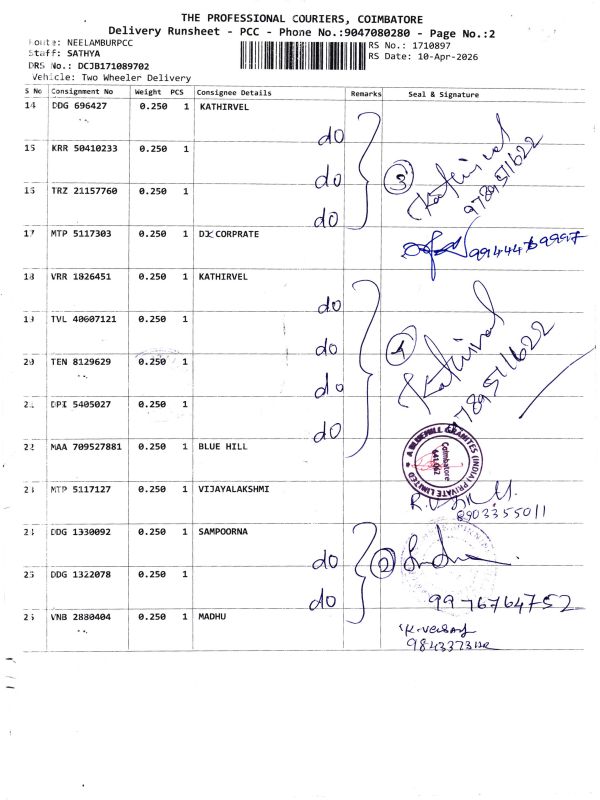 THE PROFESSIONAL COURIERS, COIMBATORE
Delivery Runsheet - PCC - Phone No.:9047080280 - Page No.:2
Route: NEELAMBURPCC
Staff: SATHYA
DRS No.: DCJB171089702
Vehicle: Two Wheeler Delivery
RS No.: 1710897
RS Date: 10-Apr-2026
S No Consignment No Weight PCS Consignee Details Remarks Seal & Signature
14 DDG 696427 0.250 1 KATHIRVEL
do
15 KRR 50410233 0.250 1
do
16 TRZ 21157760 0.250 1
do
3 Kathirvel
9789511622
17 MTP 5117303 0.250 1 DX CORPRATE
18 VRR 1826451 0.250 1 KATHIRVEL
do
19 TVL 40607121 0.250 1
do
20 TEN 8129629 0.250 1
do
21 DPI 5405027 0.250 1
do
4 Kathirvel
9789511622
22 MAA 709527881 0.250 1 BLUE HILL
A BLUEHILL GRANITES (INDIA) PRIVATE LIMITED
Coimbatore
641 062
23 MTP 5117127 0.250 1 VIJAYALAKSHMI
8903355011
24 DDG 1330092 0.250 1 SAMPOORNA
do
25 DDG 1322078 0.250 1
do
2
9976764752
26 VNB 2880404 0.250 1 MADHU